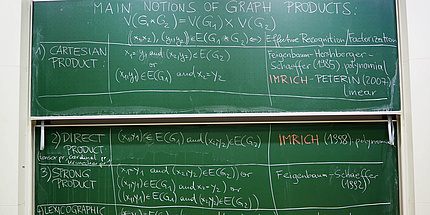 MAIN NOTIONS OF GRAPH PRODUCTS:
V(G₁*G₂)=V(G₁)×V(G₂)
(x₁x₂),(y₁y₂)∈E(G₁*G₂)⇔ Effective Recognition/Factorization
1) CARTESIAN PRODUCT:
x₁=y₁ and (x₂y₂)∈E(G₂)
or
(x₁y₁)∈E(G₁) and x₂=y₂
Feigenbaum-Hershberger-
Schäffer (1985) polynomial
IMRICH-PETERIN (2007)
linear
2) DIRECT PRODUCT
(tensor pr., cardinal pr.
(x₁y₁)∈E(G₁) and (x₂y₂)∈E(G₂)
IMRICH (1998): polynomial
3) STRONG PRODUCT
x₁=y₁ and (x₂y₂)∈E(G₂) or
(x₁y₁)∈E(G₁) and x₂=y₂) or
(x₁y₁)∈E(G₁) and (x₂y₂)∈E(G₂)
Feigenbaum-Schäffer
(1992)
4) LEXICOGRAPHIC